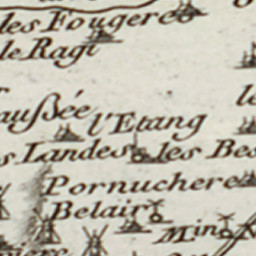 les Fougere
le Ragi
außée
l'Etang
le
s Landes
les Bes
Pornuchere
Belair
Min